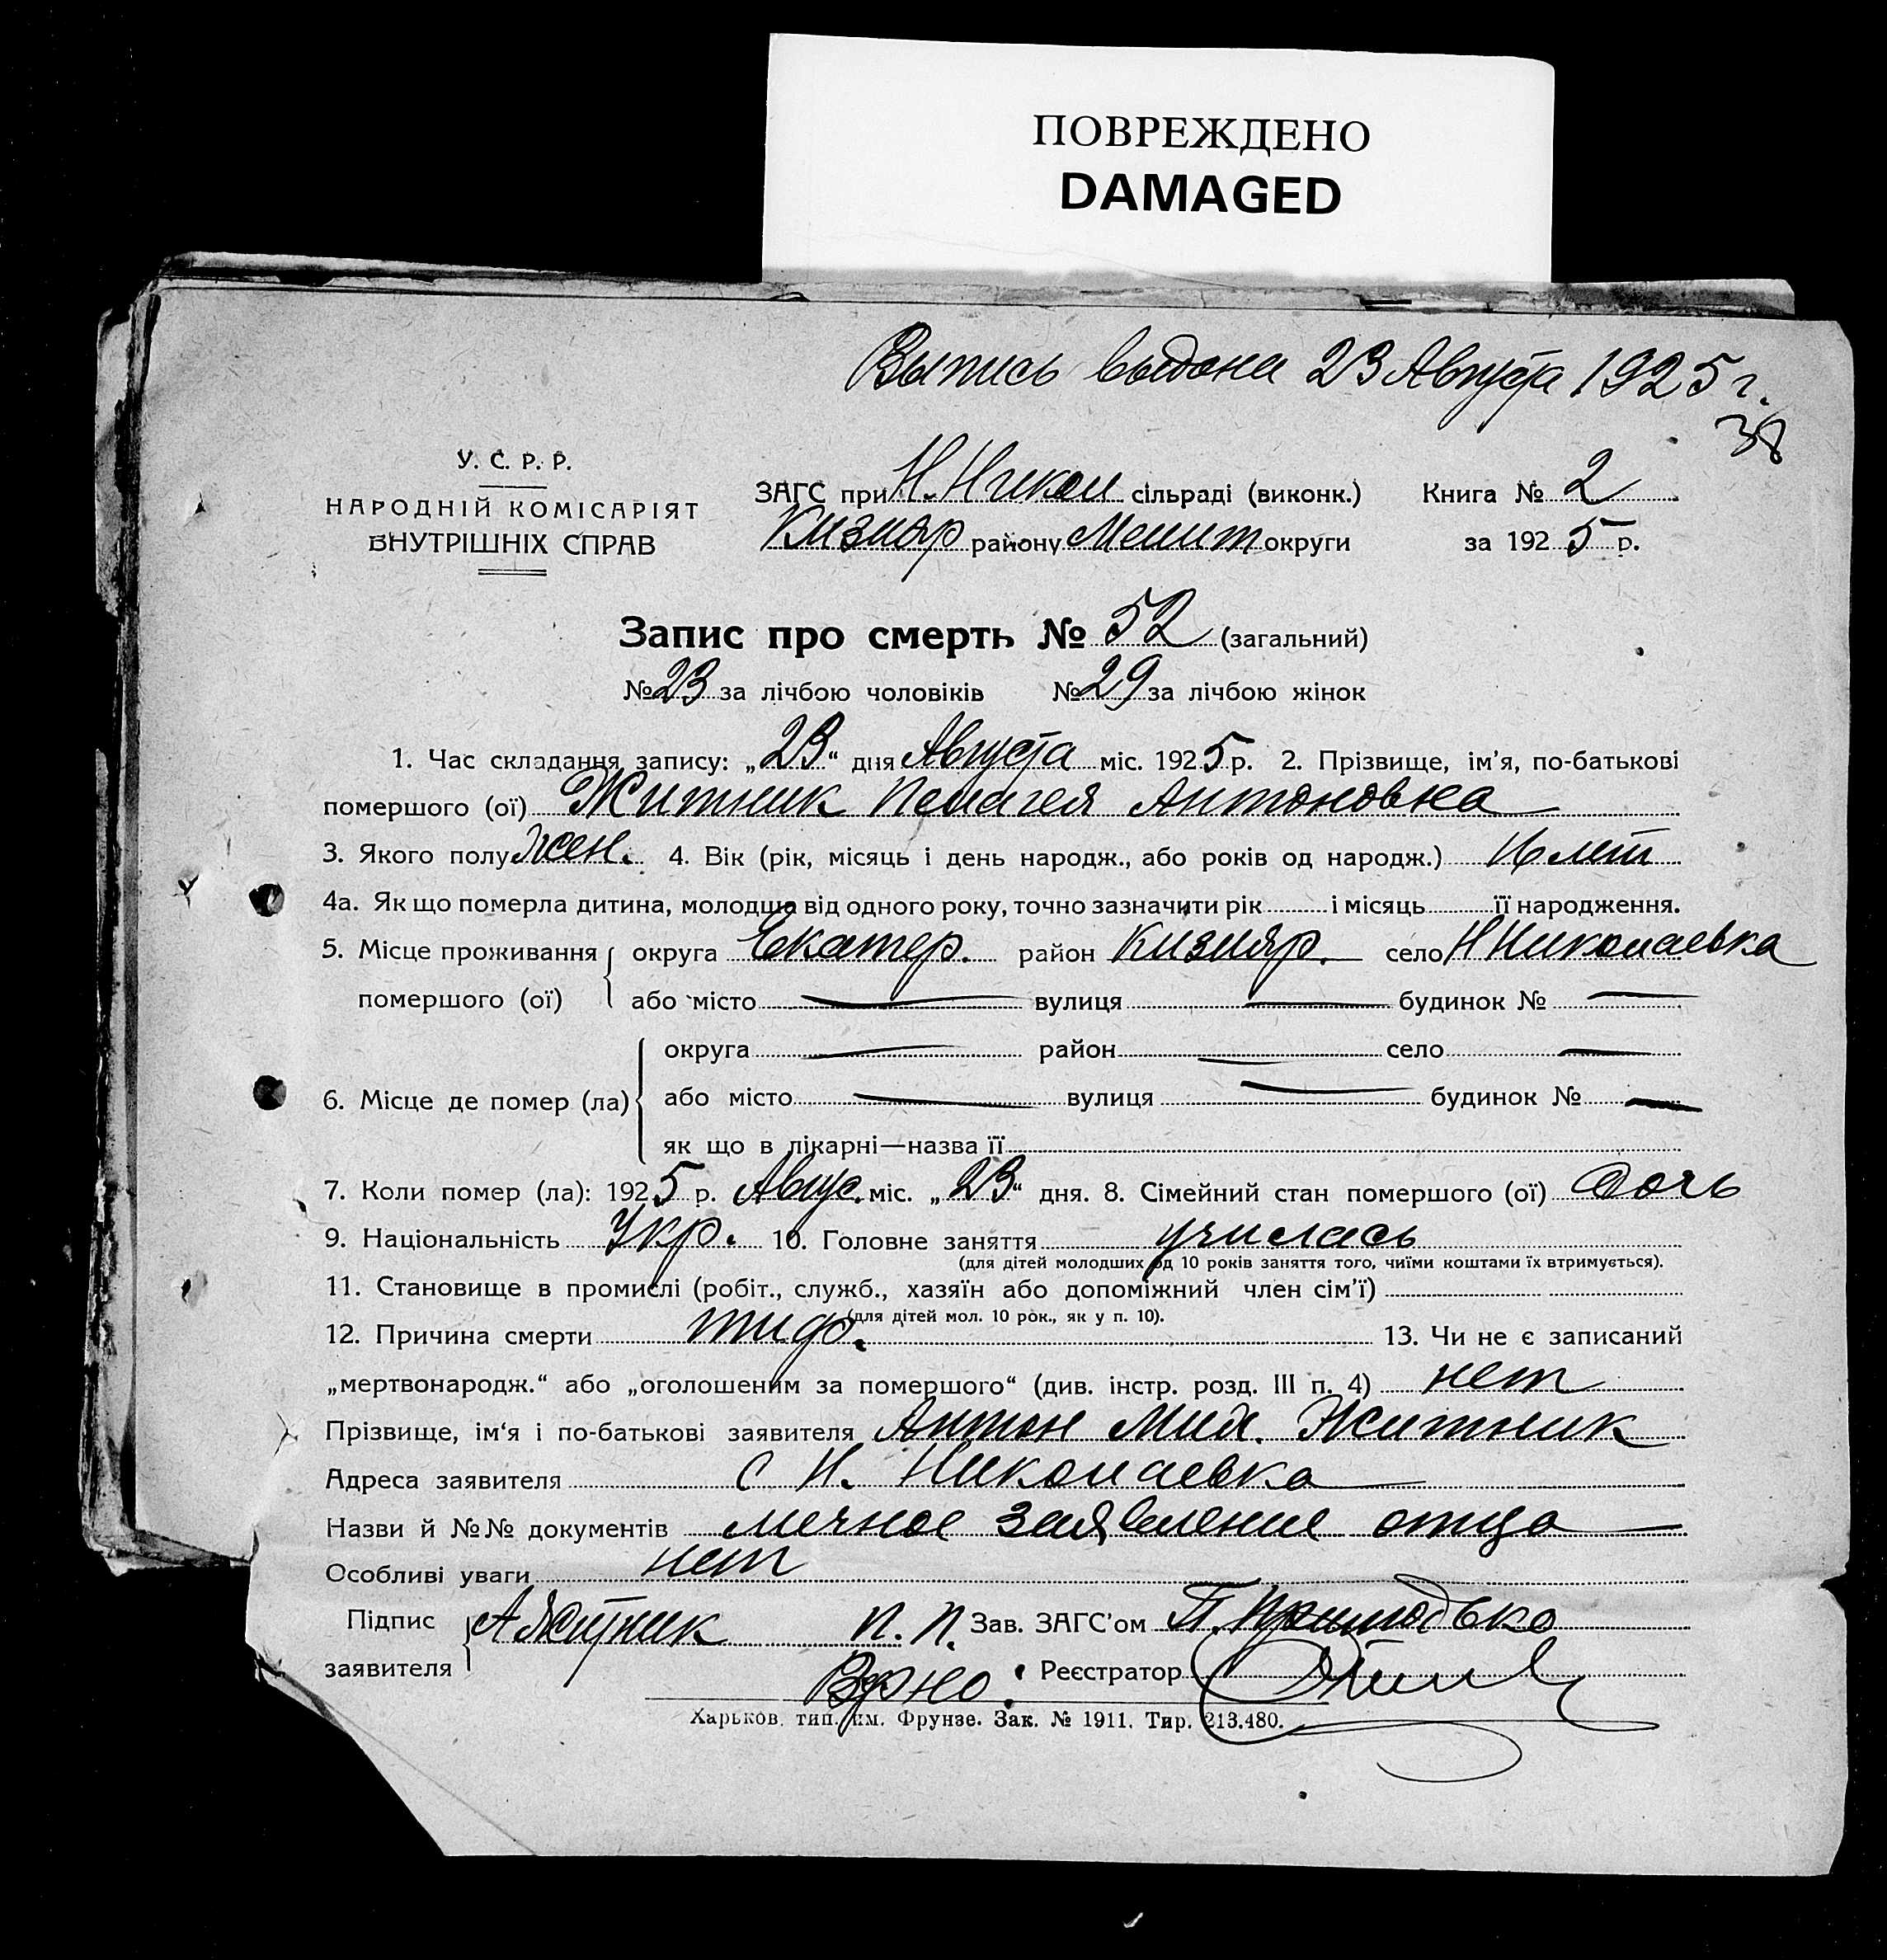 ПОВРЕЖДЕНО
DAMAGED
Выпись выдана 23 Августа 1925 г.
38
У. С. Р. Р.
НАРОДНІЙ КОМІСАРІЯТ
ВНУТРІШНІХ СПРАВ
ЗАГС при Н. Никол сільраді (виконк.) Книга № 2
Кизияр району Мелит округи за 1925 р.
Запис про смерть № 52 (загальний)
№ 23 за лічбою чоловіків № 29 за лічбою жінок
1. Час складання запису: „23“ дня Августа міс. 1925 р. 2. Прізвище, ім'я, по-батькові
помершого (ої) Житник Пелагея Антоновна
3. Якого полу жен. 4. Вік (рік, місяць і день народж., або років од народж.) 16 лет
4а. Як що померла дитина, молодша від одного року, точно зазначити рік і місяць її народження.
5. Місце проживання округа Екатер. район Кизияр. село Н Николаевка
помершого (ої) або місто — вулиця — будинок № —
округа — район — село —
6. Місце де помер (ла) або місто — вулиця — будинок № —
як що в лікарні—назва її
7. Коли помер (ла): 1925 р. Авгус. міс. „23“ дня. 8. Сімейний стан помершого (ої) дочь
9. Національність Укр. 10. Головне заняття училась
(для дітей молодших од 10 років заняття того, чиїми коштами їх втримується).
11. Становище в промислі (робіт., служб., хазяїн або допоміжний член сім'ї)
(для дітей мол. 10 рок., як у п. 10).
12. Причина смерти тиф. 13. Чи не є записаний
„мертвонародж.“ або „оголошеним за помершого“ (див. інстр. розд. III п. 4) нет
Прізвище, ім'я і по-батькові заявителя Антон Мих. Житник
Адреса заявителя с Н. Николаевка
Назви й №№ документів личное заявление отца
Особливі уваги нет
Підпис А Житник п. п. Зав. ЗАГС'ом П. Приходько
заявителя Врно. Реєстратор
Харьков. тип. им. Фрунзе. Зак. № 1911. Тир. 213.480.